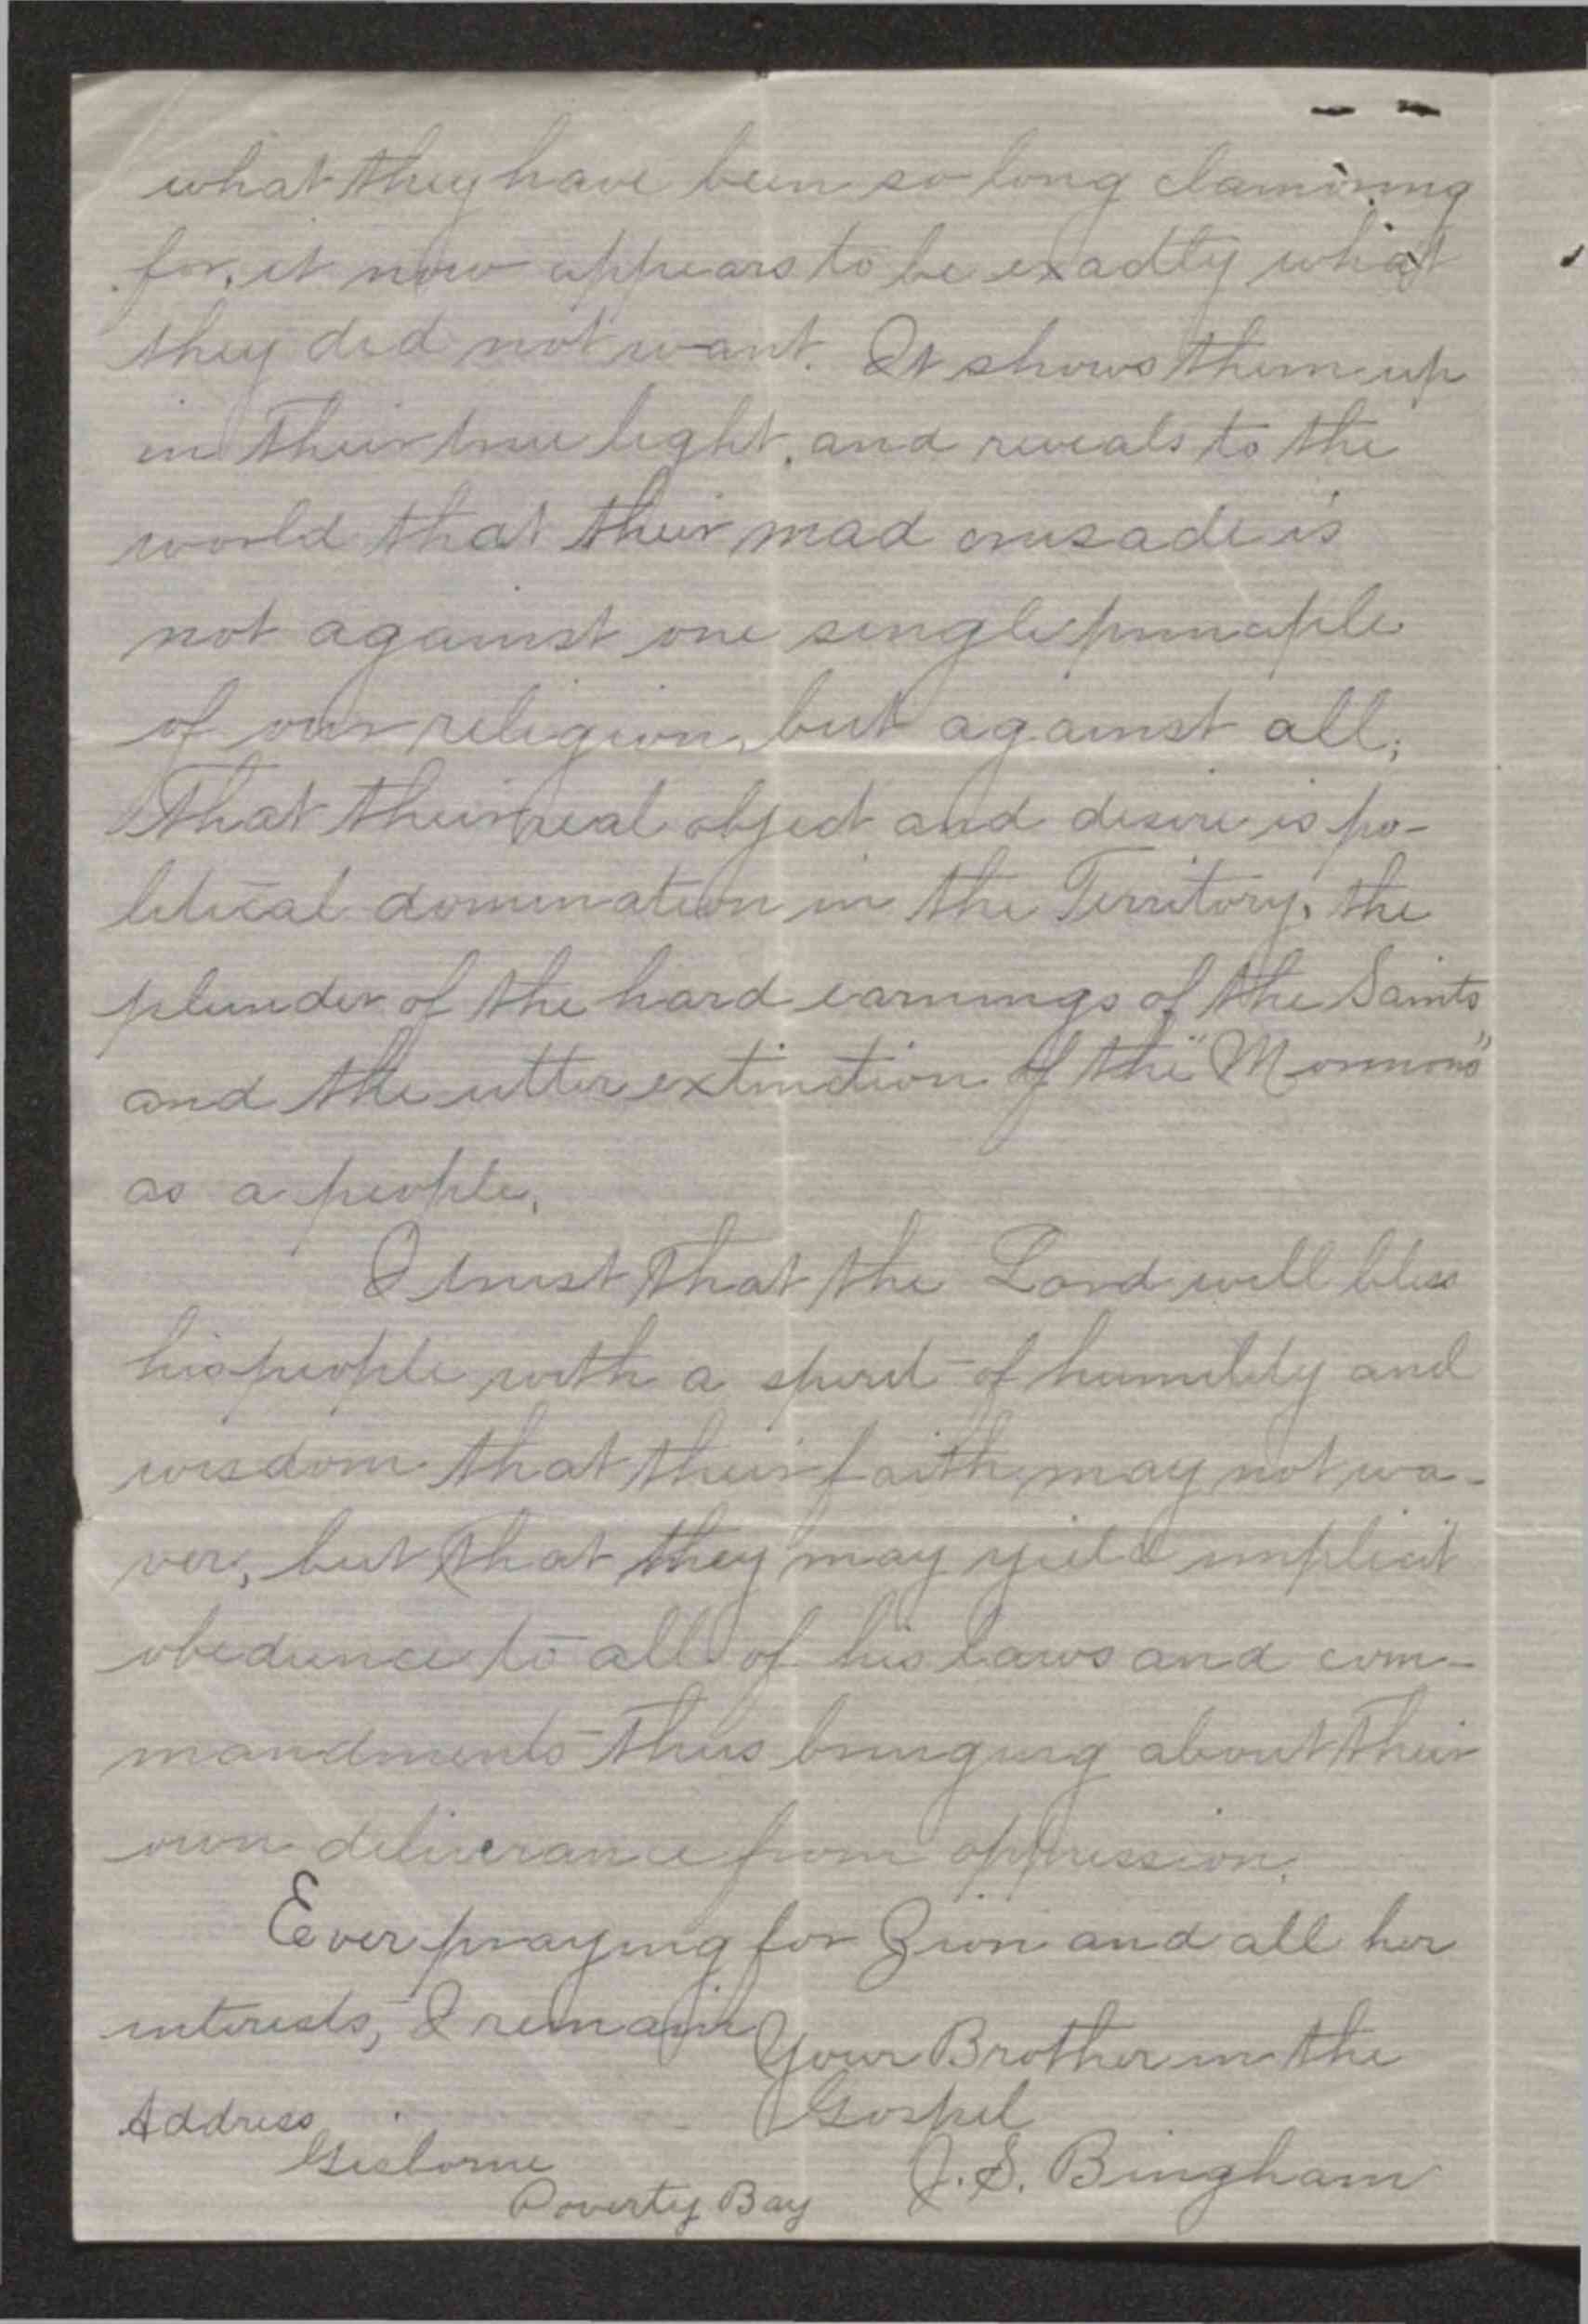 what they have been so long clamoring
for, it now appears to be exactly what
they did not want. It shows them up
in their true light, and reveals to the
world that their mad crusade is
not against one single principle
of our religion, but against all;
That their real object and desire is po-
litical domination in the Territory, the
plunder of the hard earnings of the Saints
and the utter extinction of the "Mormons"
as a people.
I trust that the Lord will bless
his people with a spirit of humility and
wisdom that their faith may not wa-
ver, but that they may yield implicit
obedience to all of his laws and com-
mandments thus bringing about their
own deliverance from oppression.
Ever praying for Zion and all her
interests, I remain
Your Brother in the
Gospel
J. S. Bingham
Address
Gisborne
Poverty Bay